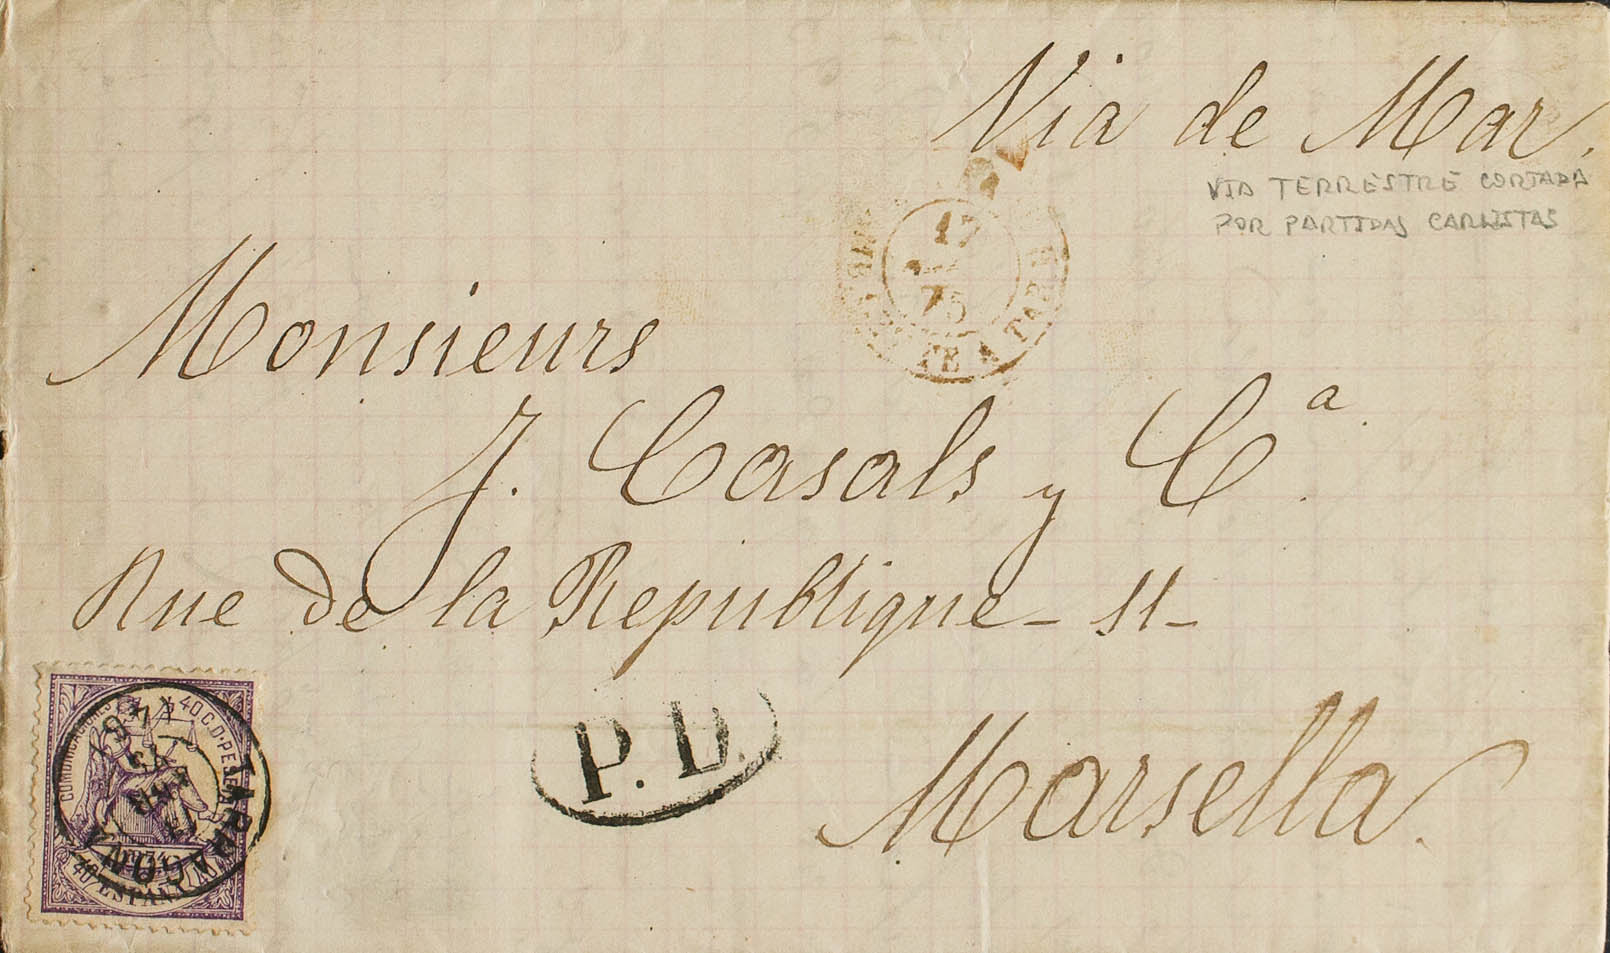 Via de Mar.
VIA TERRESTRE CORTADA
POR PARTIDAS CARLISTAS
17
75
TE A TARA
Monsieurs
J. Casals y Cª.
Rue de la Republique - 11 -
P.D.
Marsella.
COMUNICACIONES 40 C. D. PESETA
TARRAGONA
1874
40 ESPAÑA 40